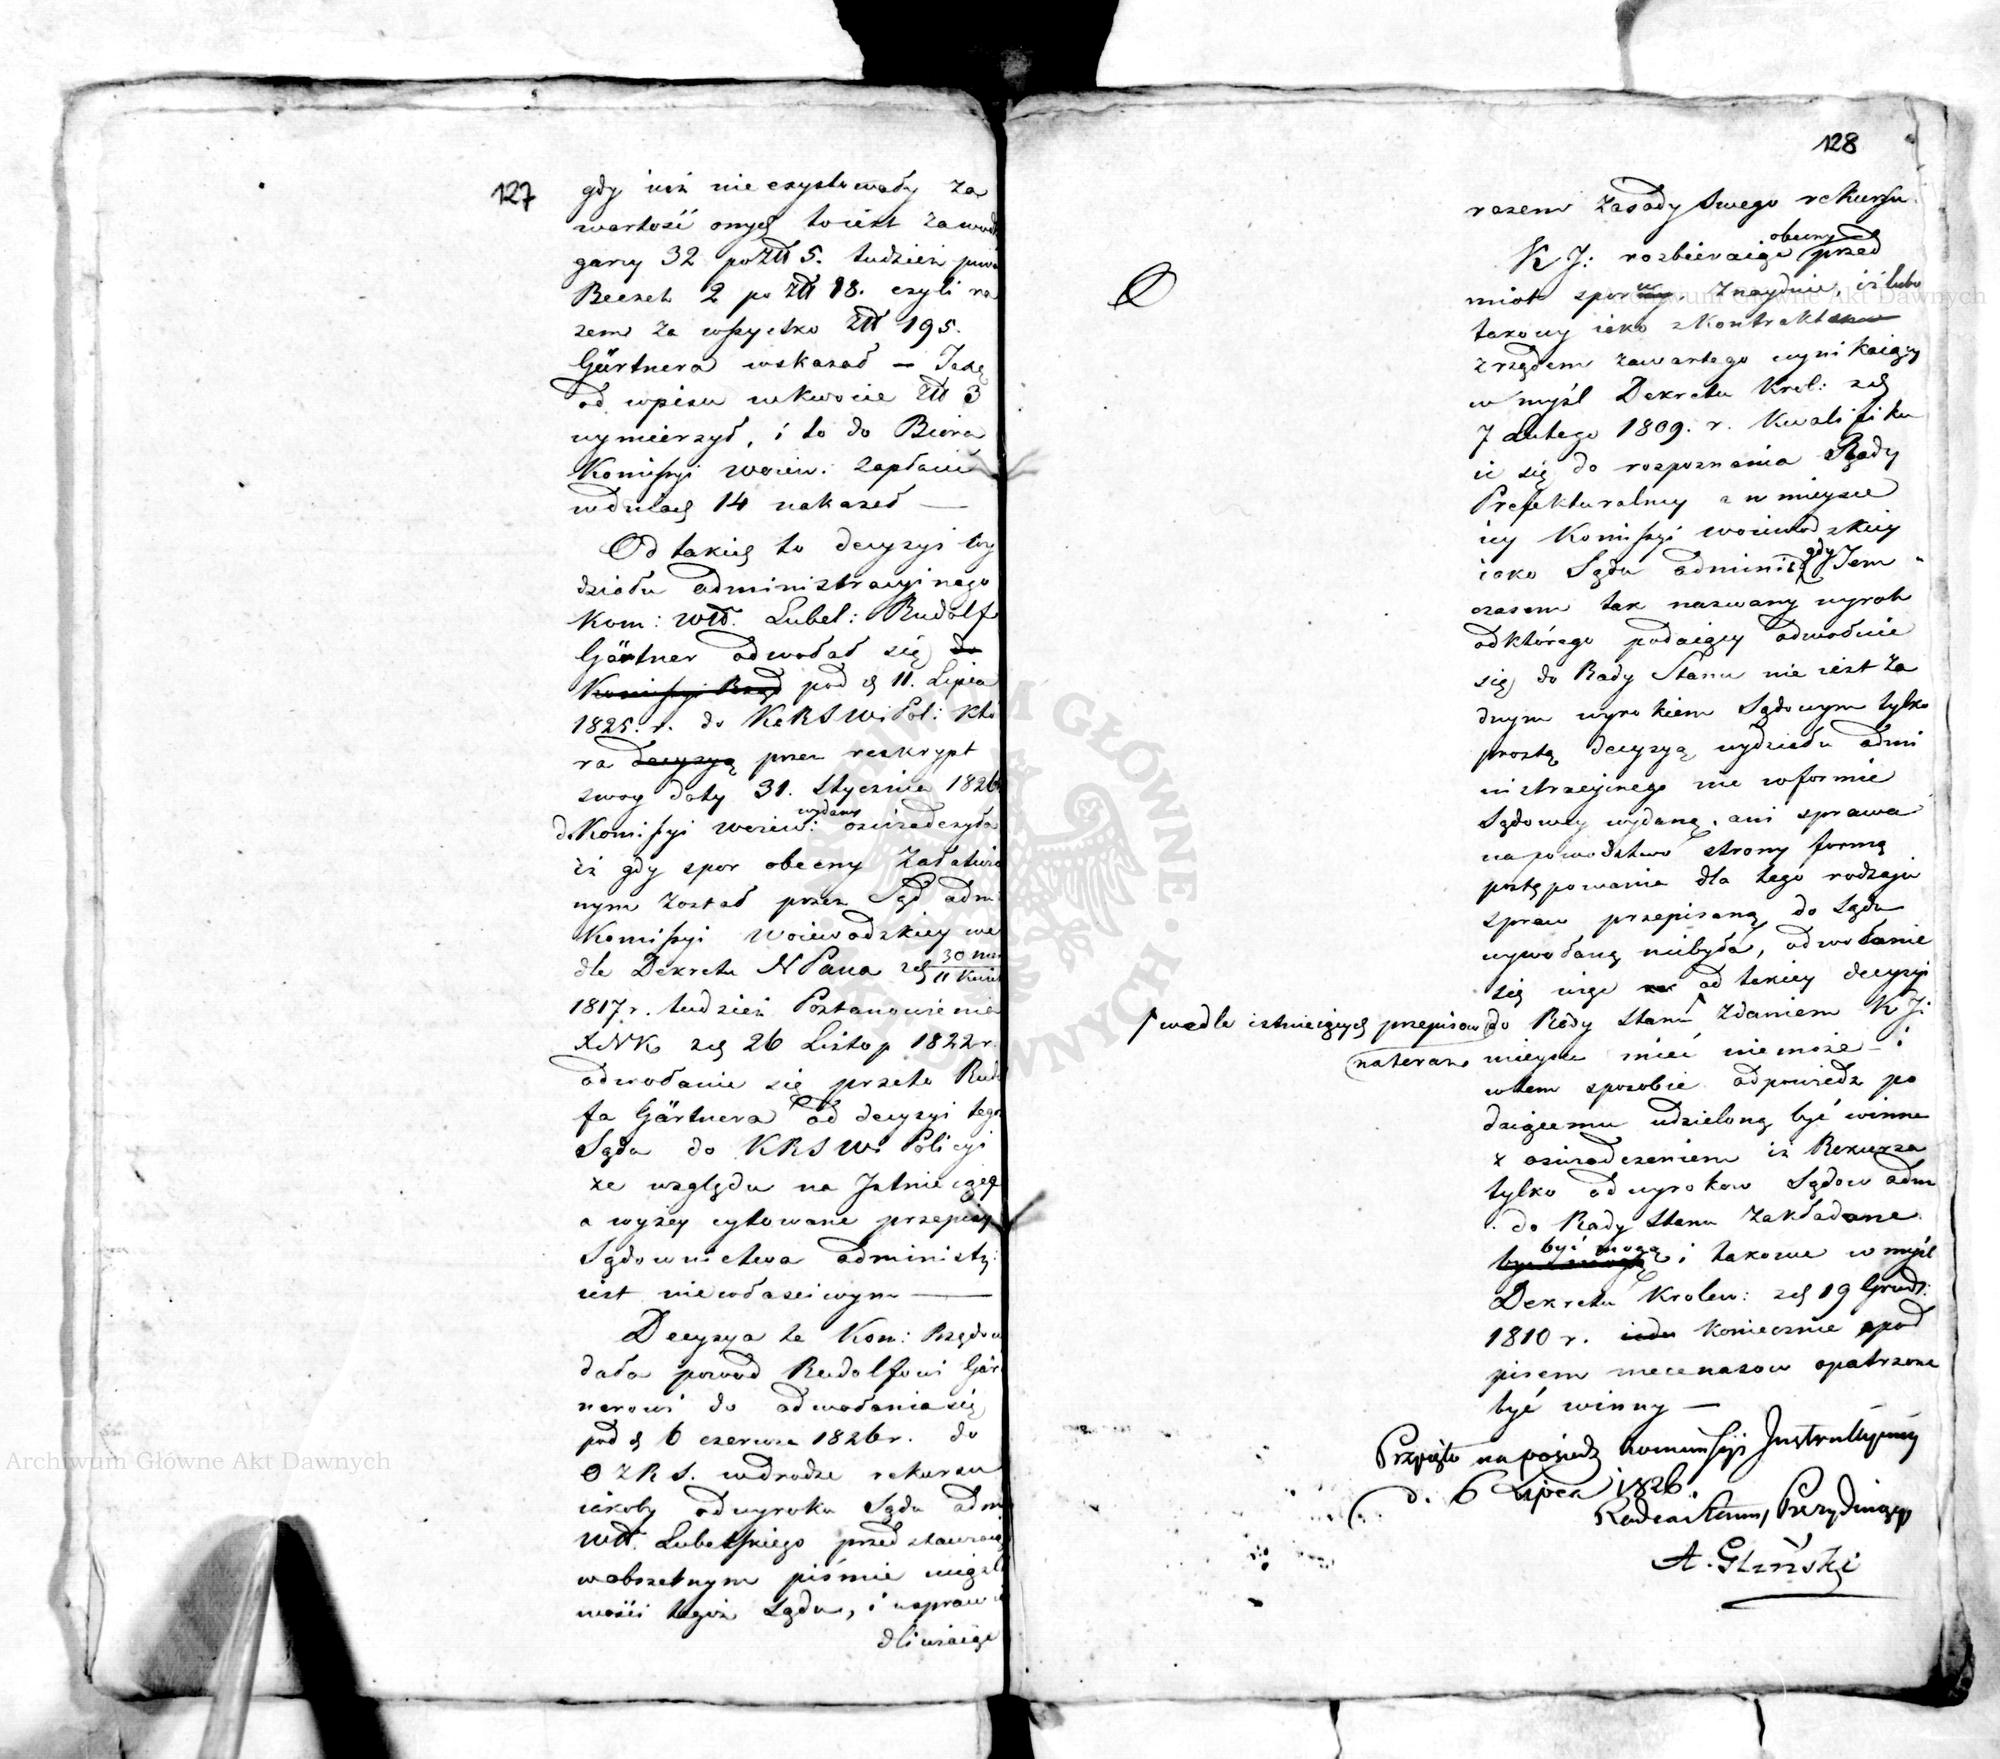 127
gdy już nie exystowały za
wartość onych to iest za
garcy 32 po Złł 5. tudzież
Beczek 2 po złł 18. czyli ra
zem za wszystko Złł 195.
Gärtnera wskazał —
od wpisu w kwocie Złł 3
wymierzył, i to do Biora
Komissyi Woiew: zapłacić
w dniach 14 nakazał —
Od takiey to decyzyi wy
działu administracyinego
Kom: Wdł. Lubel: Rudolf
Gärtner odwołał się do
Komissyi Rząd pod d 11. Lipca
1825. r. do KRSWiPol: któ
ra decyzyą przez reskrypt
swoy daty 31. Stycznia 1826
wydany
do Komissyi Woiew: oświadczyła
iż gdy spor obecny załatwio
nym został przez Sąd adm
Komissyi Woiewodzkiey we
dle Dekretu NPana z d 30
11 Kwiet
1817 r. tudzież Postanowienia
XNK z d 26 Listop 1822 r.
odwołanie się przeto Rudol
fa Gärtnera od decyzyi tego
Sądu do KRSWi Policyi
ze względu na Istnieiące
a wyżey cytowane przepisy
Sądownictwa administr:
iest niewłaściwym —
Decyzya ta Kom: Rządow
dała powod Rudolfowi Gärt
nerowi do odwołania się
pod d 6 czerwca 1826 r. do
OZRS. w drodze rekursu
iakoby od wyroku Sądu adm
Wdł. Lubelskiego przedstawiaiąc
w obszernym piśmie
ności tegoż Sądu, i usprawie
dliwiaiąc
128
razem zasady swego rekursu.
obecny
K J: rozbieraiąc przed
miot sporny znayduie, iż lubo
takowy iako z Kontraktu
z rządem zawartego wynikaiący
w myśl Dekretu Krol: z d
7 Lutego 1809. r. Kwalifiku
ie się do rozpoznania Rady
Prefekturalney a w mieysce
iey Komissyi woiewodzkiey
iako Sądu administ gdy Tem
czasem tak nazwany wyrok
od którego podaiący odwołuie
się do Rady Stanu nie iest ża
dnym wyrokiem Sądowym tylko
prostą decyzyą wydziału admi
nistracyinego nie w formie
Sądowey wydaną, ani sprawa
na powództwo strony formą
postępowania dla tego rodzaju
spraw przepisaną do Sądu
wywołaną niebyła, odwołanie
się więc od takiey decyzyi
wedle istnieiących przepisow do Rady Stanu zdaniem K J:
na teraz mieysca mieć niemoże — i
w tem sposobie odpowiedz po
daiącemu udzieloną być winna
z oświadczeniem iż Rekursa
tylko od wyrokow Sądow adm
do Rady Stanu zakładane
być mogą
być mogą i takowe w myśl
Dekretu Krolew: z d 19 Grudz:
1810 r. koniecznie pod
pisem mecenasow opatrzone
być winny —
Przyięto na posiedz kommissyi Instrukcyiney
d. 6 Lipca 1826.
Radca Stanu, Prezyduiący
A. Gliński
Archiwum Główne Akt Dawnych
Archiwum Główne Akt Dawnych
ARCHIWUM GŁÓWNE AKT DAWNYCH